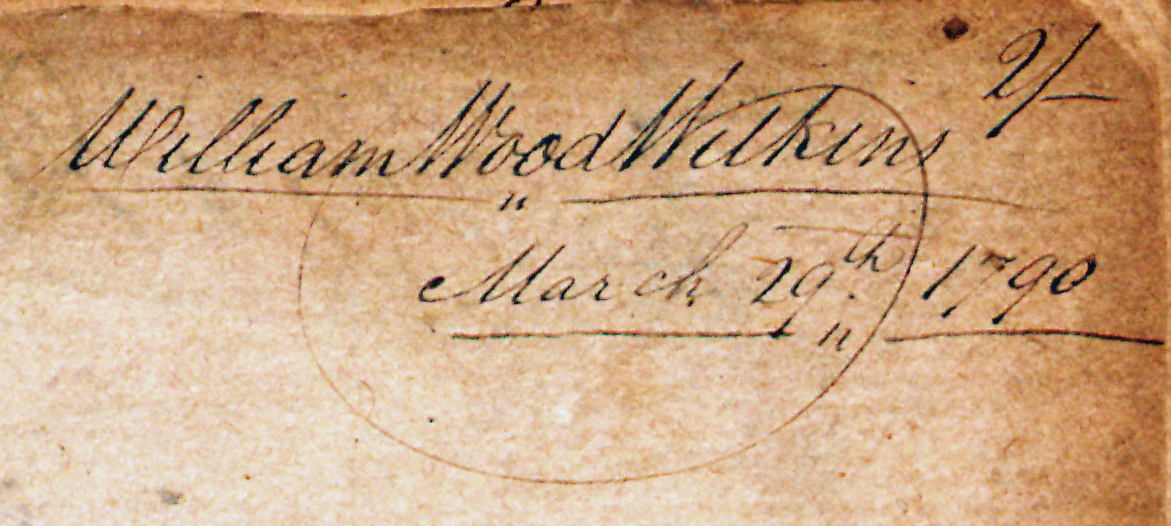 2/-
William Wood Wilkins
"
March 29th 1790
"